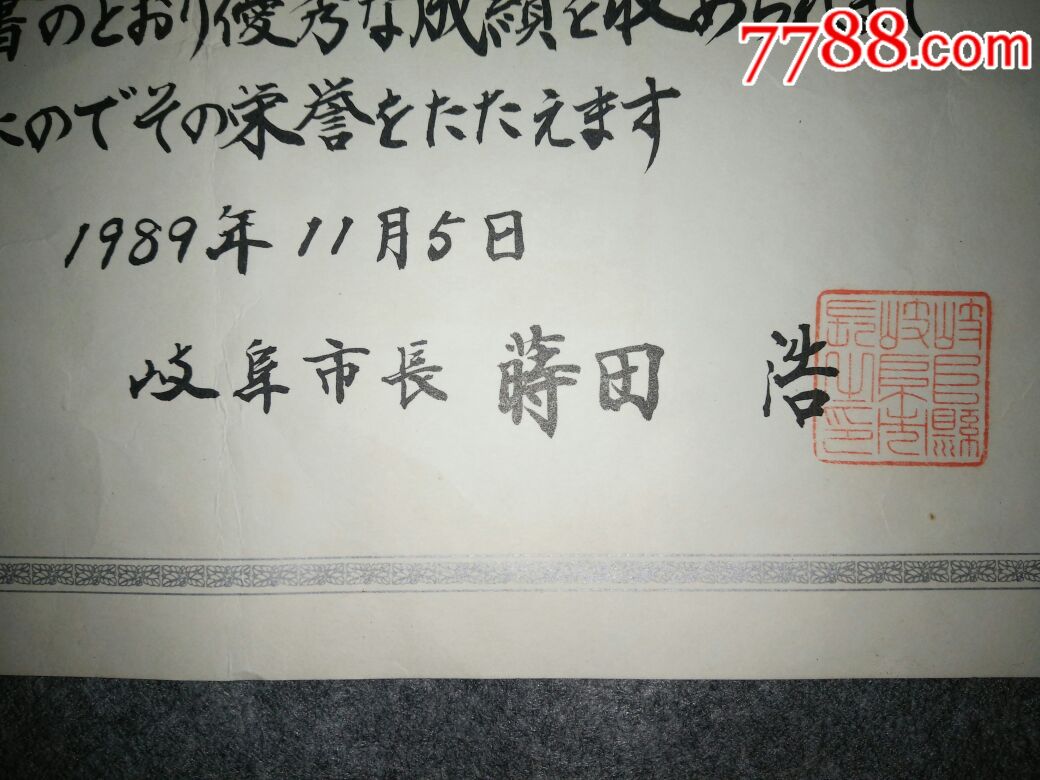 書のとおり優秀な成績を収められまし
たのでその栄誉をたたえます
1989年11月5日
岐阜市長 蒔田 浩
岐阜縣岐阜市長之印
7788.com